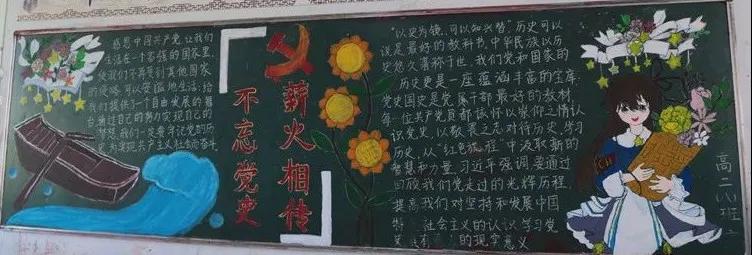 感恩中国共产党,让我们
生活在一个高强的国家里,
使我们不再受到其他国家
的侵略,可以安稳地生活;给
我们提供了一个自由发展的舞
台,通过自己的努力实现自己的
梦想,我们一定要牢记党的历
史,为实现共产主义社会而奋斗
不忘党史
薪火相传
“以史为镜,可以知兴替”历史可以
说是最好的教科书,中华民族以历
史悠久著称于世,我们党和国家的
历史更是一座蕴涵丰富的宝库.
党史国史是党属干部最好的教材,
每一位共产党员都该怀以崇仰之情认
识党史,以敬畏之志对待历史,学习
历史,从“红色旅程”中汲取新的
智慧和力量,习近平强调,要通过
回放我们党走过的光辉历程,
提高我们对坚持和发展中国
特 社会主义的认识,学习党
史 有 的现实意义
高二八班